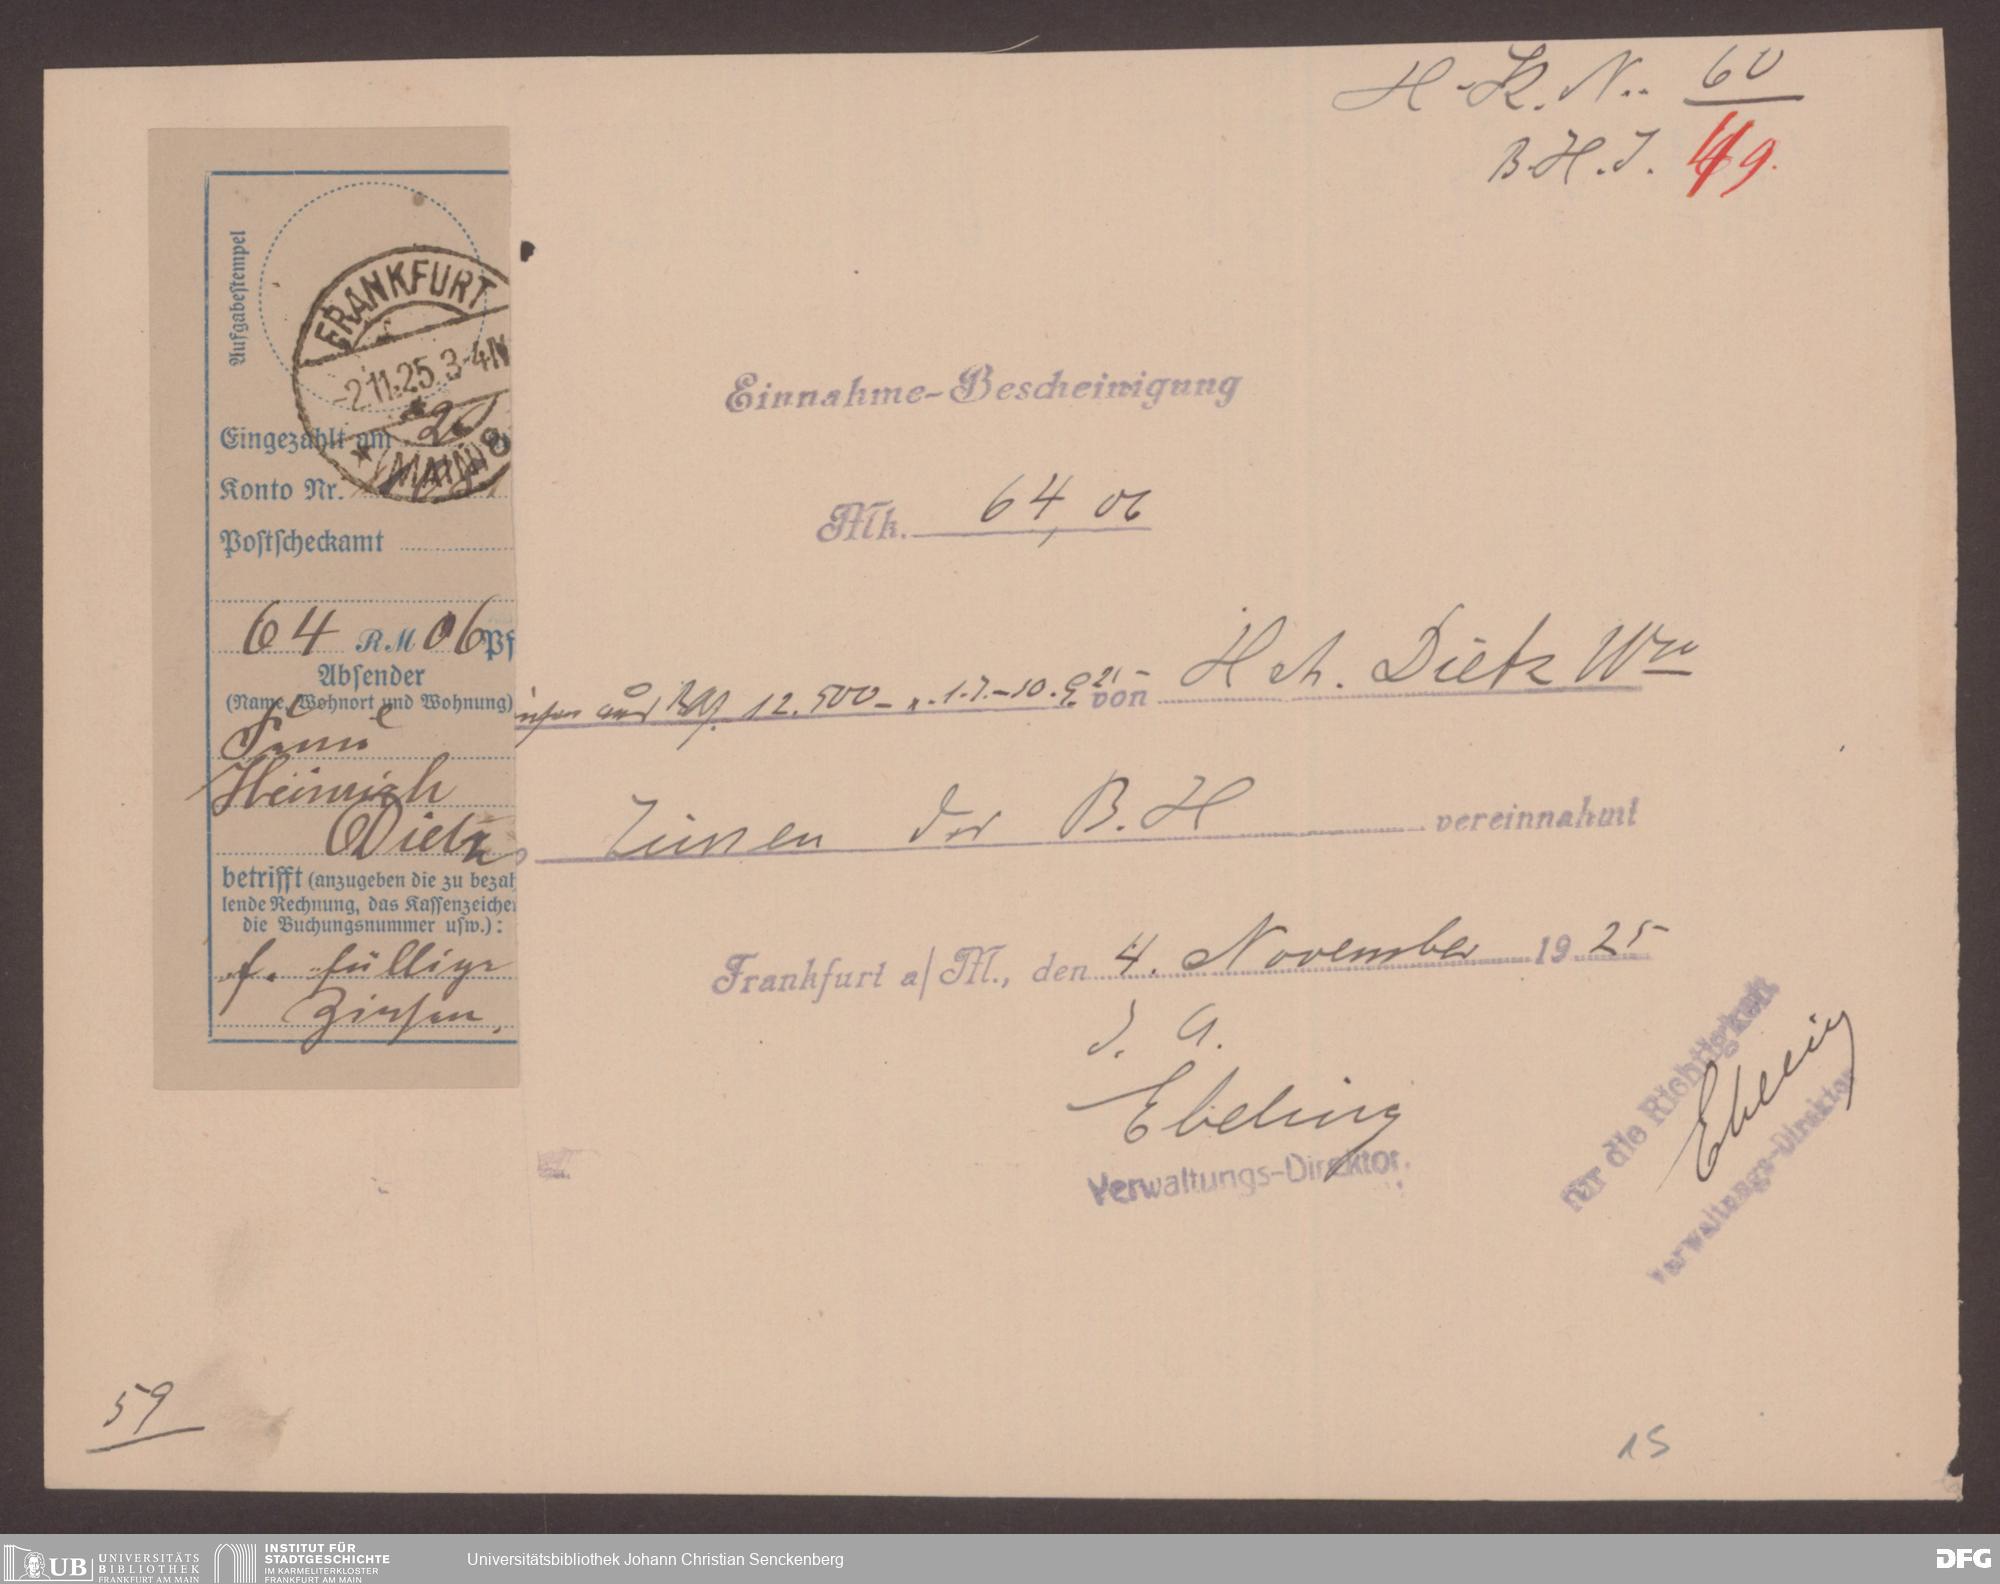 H.K.N. 60
B.H.J. 49.
Aufgabestempel
FRANKFURT
-2.11.25 3-4N
* (MAIN) 8
Eingezahlt am 2
Konto Nr.
Postscheckamt
64 RM 06 Pf
Absender
(Name, Wohnort und Wohnung)
Heinrich
Dietz
betrifft (anzugeben die zu bezah
lende Rechnung, das Kassenzeichen
die Buchungsnummer usw.):
f. fällige
Zinsen.
Einnahme-Bescheinigung
Mk. 64,06
12.500 1.7.-10.9.25 von Hch. Dietz Wwe
Zinsen der B.H vereinnahmt
Frankfurt a/M., den 4. November 1925
I. A.
Ebeling
Verwaltungs-Direktor.
Für die Richtigkeit
Ebeling
Verwaltungs-Direktor
59
15
UB UNIVERSITÄTS
BIBLIOTHEK
FRANKFURT AM MAIN
INSTITUT FÜR
STADTGESCHICHTE
IM KARMELITERKLOSTER
FRANKFURT AM MAIN
Universitätsbibliothek Johann Christian Senckenberg
DFG